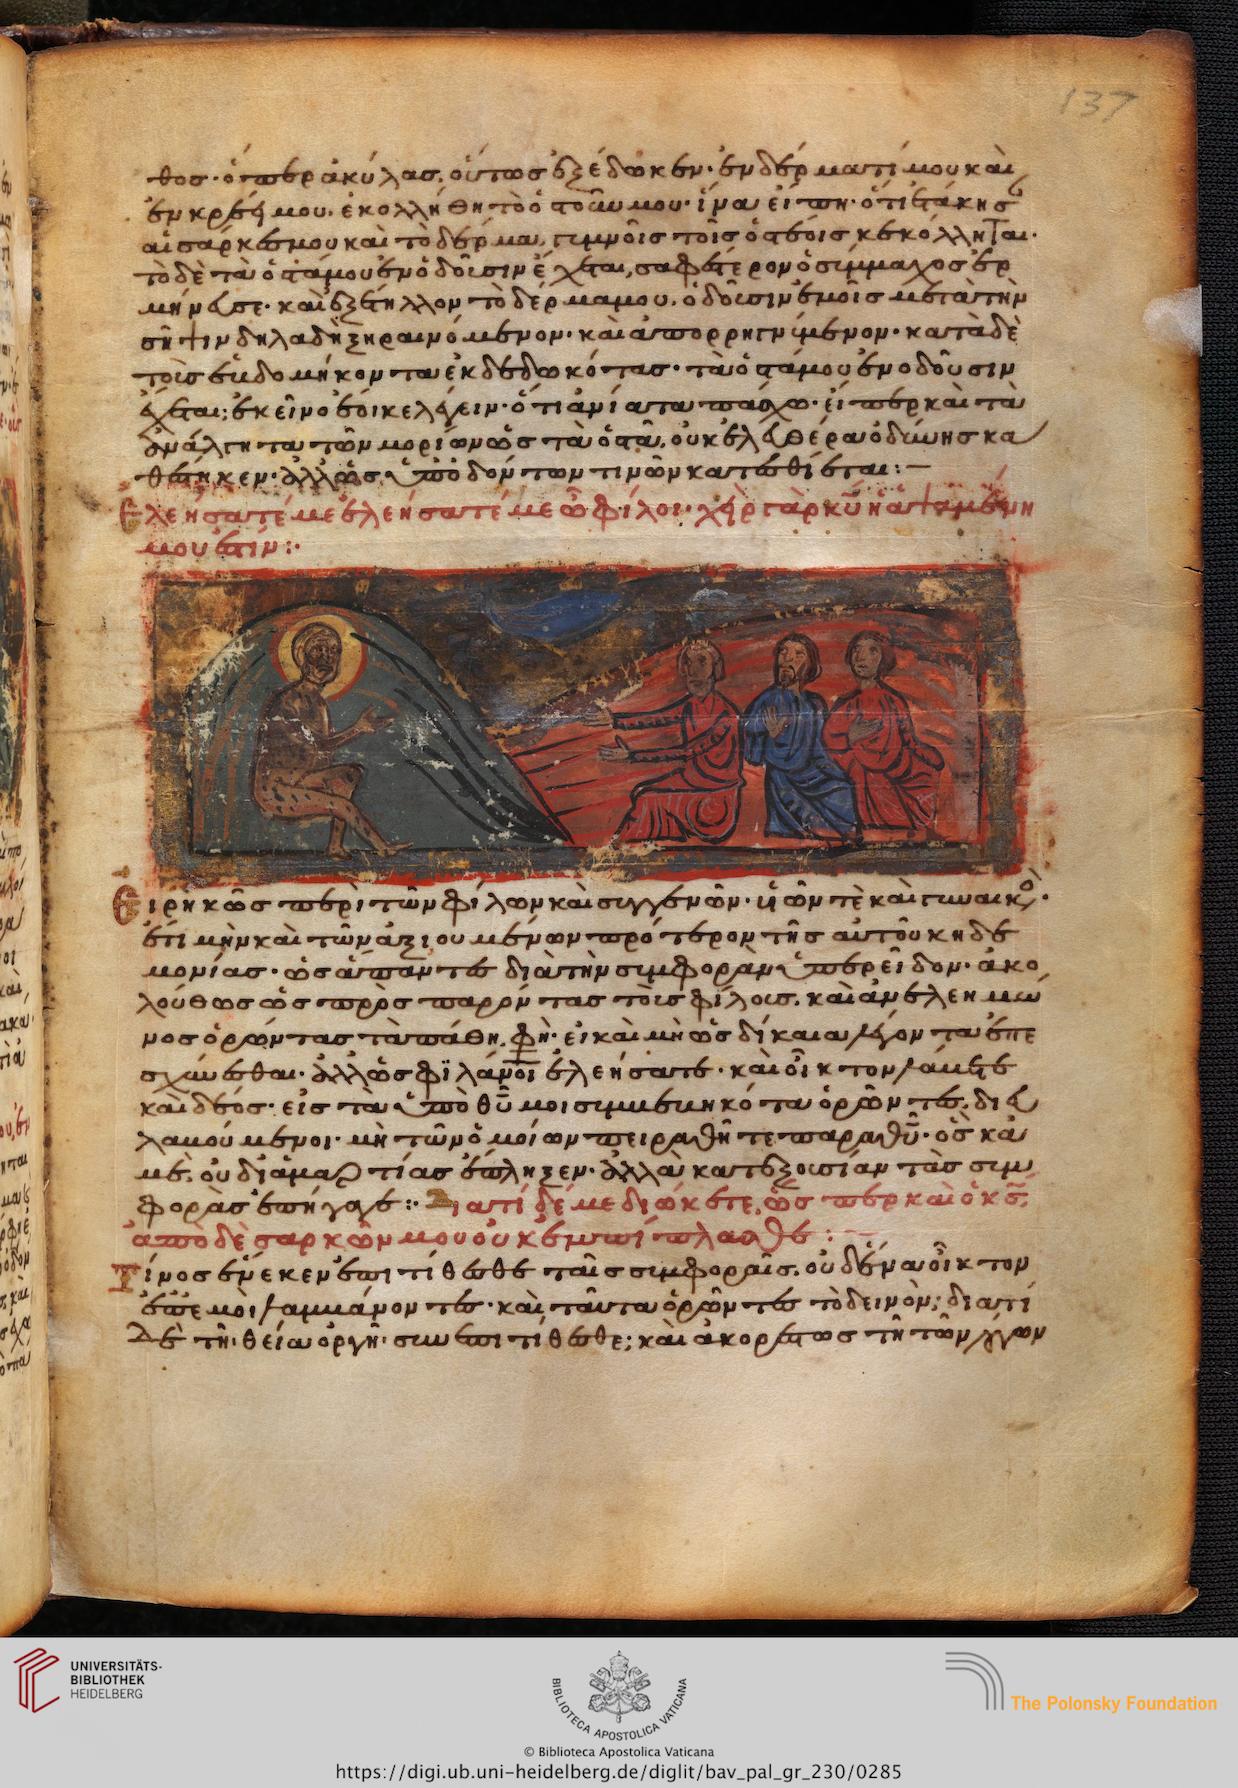 137
θος· ὅπερ ἀκύλας, οὕτως ἐξέδωκεν· ἐν δέρματί μου καὶ
ἐν κρέᾳ μου, ἐκολλήθη τὸ ὀστοῦν μου· ἵνα εἴπῃ· ὅτι ἐτάκησ
αἱ σάρκες μου καὶ τὸ δέρμα, γυμνοῖς τοῖς ὀστέοις κεκόλληται·
τὸ δὲ τὰ ὀστᾶ μου ἐν ὀδοῦσιν ἔχεται, σαφέστερον ὁ σύμμαχος
καὶ ἐξέτιλλον τὸ δέρμα μου, ὀδοῦσιν ἐμοῖς μετὰ τὴν
σῆψιν δηλαδὴ ξηραινόμενον· καὶ ἀπορρηγνύμενον· κατὰ δὲ
τοὺς ἑβδομήκοντα ἐκδεδωκότας· τὰ ὀστᾶ μου ἐν ὀδοῦσιν
ἔχεται; ἐκεῖνο ἔοικε λέγειν· ὅτι ἀνίατα πάσχω· εἴπερ καὶ τὰ
ἀνάλγητα τῶν μορίων ὡς τὰ ὀστᾶ, οὐκ ἐλευθέρα ὀδύνης κα
θέστηκεν· ἀλλ' ὡς ὑπὸ δόντων τινῶν κατεσθίεται:
ἐλεήσατέ με ἐλεήσατέ με ὦ φίλοι· χεὶρ γὰρ κυ ἡ ἁψαμένη
μου ἐστίν:·
Εἰρηκὼς περὶ τῶν φίλων καὶ συγγενῶν· υἱῶν τὲ καὶ γυναικός·
ἔτι μὴν καὶ τῶν ἀξιουμένων πρότερον τῆς αὐτοῦ κηδε
μονίας· ὡς ἅπαντες διὰ τὴν συμφορὰν ὑπερεῖδον· ἀκο
λούθως ὡς πρὸς παρόντας τοὺς φίλους, καὶ ἀνελεημό
νως ὁρῶντας τὰ πάθη, φη· εἰ καὶ μὴ ὡς δίκαια λέγοντα
ἀλλ' ὡς φιλανοι ἐλεήσατε· καὶ οἶκτον λάβετε
καὶ δέος· εἰς τὰ
λαβούμενοι· μὴ τῶν ὁμοίων πειραθῆτε παρὰ θυ· ὃς κἀ
μὲ, οὐ δι' ἁμαρτίας ἔπληξεν· ἀλλὰ κατ' ἐξουσίαν τὰς συμ
φορὰς ἐπήγαγε:· Διατί δέ με διώκετε, ὥσπερ καὶ ὁ κς;
ἀπὸ δὲ σαρκῶν μου οὐκ ἐμπίπλασθε:
Τίνος ἕνεκεν ἐπιτίθεσθε ταῖς συμφοραῖς, οὐδένα οἶκτον
ἐπ' ἐμοὶ λαμβάνοντες· καὶ ταῦτα ὁρῶντες τὸ δεινόν; διατί
δὲ τῇ θείᾳ ὀργῇ συνεπιτίθεσθε; καὶ ἀκορέστως τῇ τῶν λόγων
UNIVERSITÄTS-
BIBLIOTHEK
HEIDELBERG
BIBLIOTECA APOSTOLICA VATICANA
The Polonsky Foundation
© Biblioteca Apostolica Vaticana
https://digi.ub.uni-heidelberg.de/diglit/bav_pal_gr_230/0285